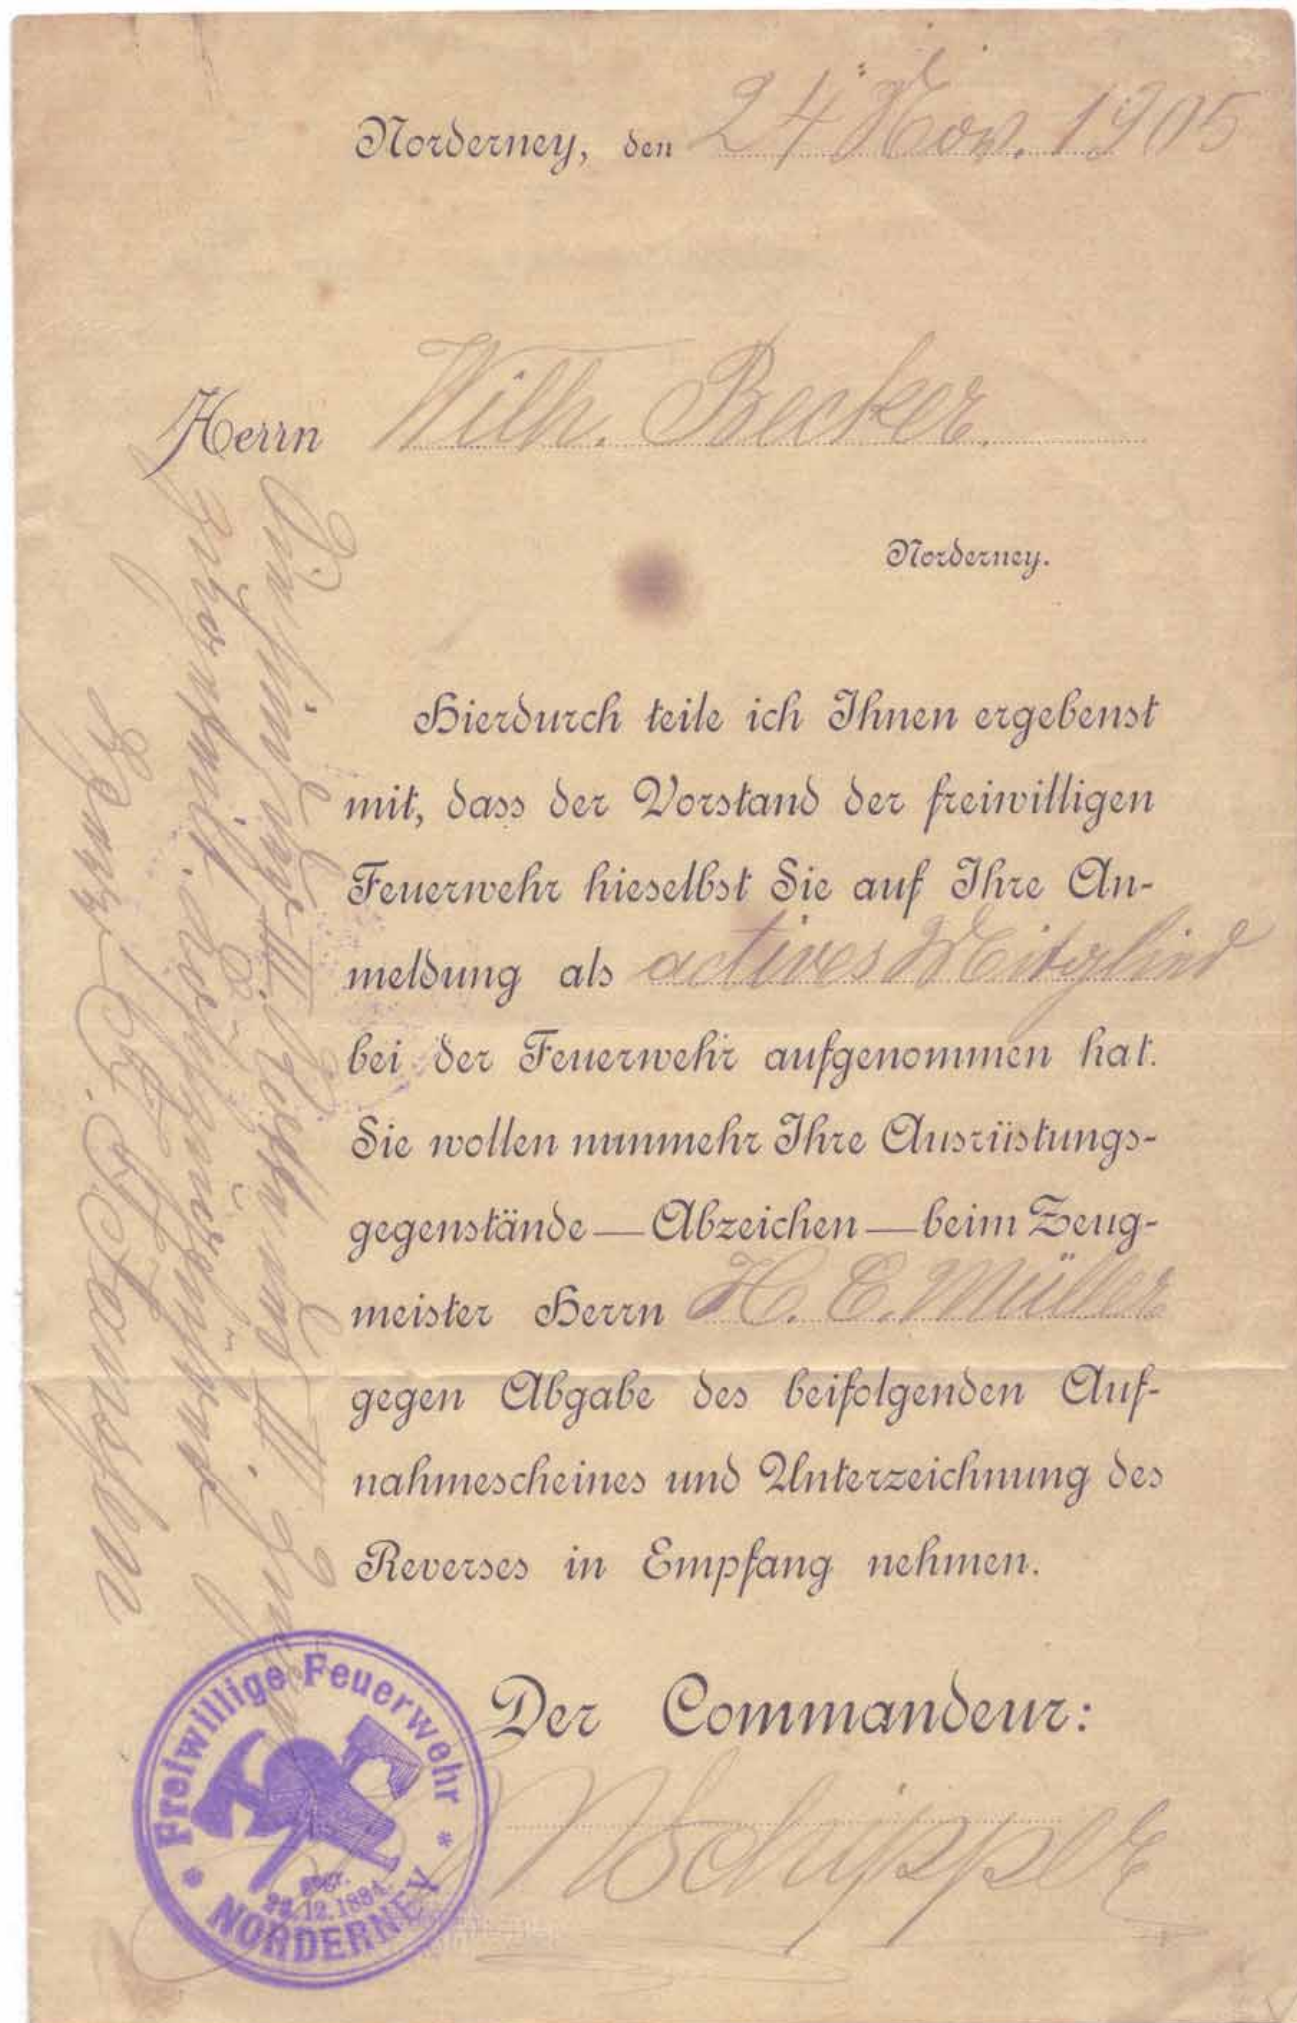 Norderney, den 24 Nov. 1905
Herrn Wilh. Becker.
Norderney.
Hierdurch teile ich Ihnen ergebenst
mit, dass der Vorstand der freiwilligen
Feuerwehr hieselbst Sie auf Ihre An-
meldung als actives Mitglied
bei der Feuerwehr aufgenommen hat.
Sie wollen nunmehr Ihre Ausrüstungs-
gegenstände — Abzeichen — beim Zeug-
meister Herrn H. E. Müller
gegen Abgabe des beifolgenden Auf-
nahmescheines und Unterzeichnung des
Reverses in Empfang nehmen.
Der Commandeur:
Schipper
Freiwillige Feuerwehr
gegr.
22.12.1884.
NORDERNEY
Sie sind der II. und dem II. Zug